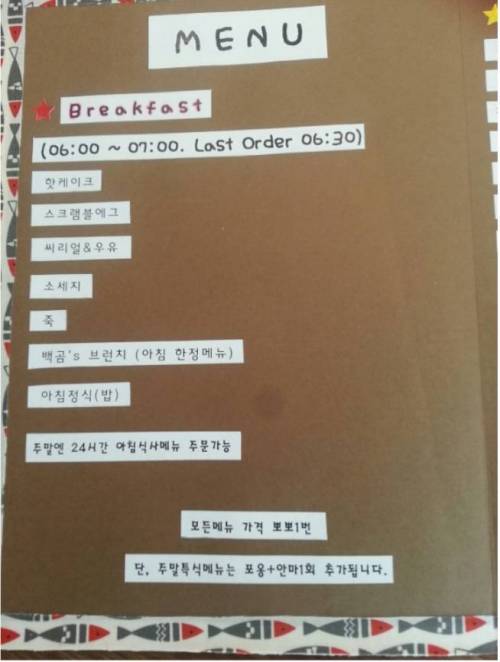 MENU
Breakfast
(06:00 ~ 07:00. Last Order 06:30)
핫케이크
스크램블에그
씨리얼&우유
소세지
죽
백곰's 브런치 (아침 한정메뉴)
아침정식(밥)
주말엔 24시간 아침식사메뉴 주문가능
모든메뉴 가격 뽀뽀1번
단, 주말특식메뉴는 포옹+안마1회 추가됩니다.